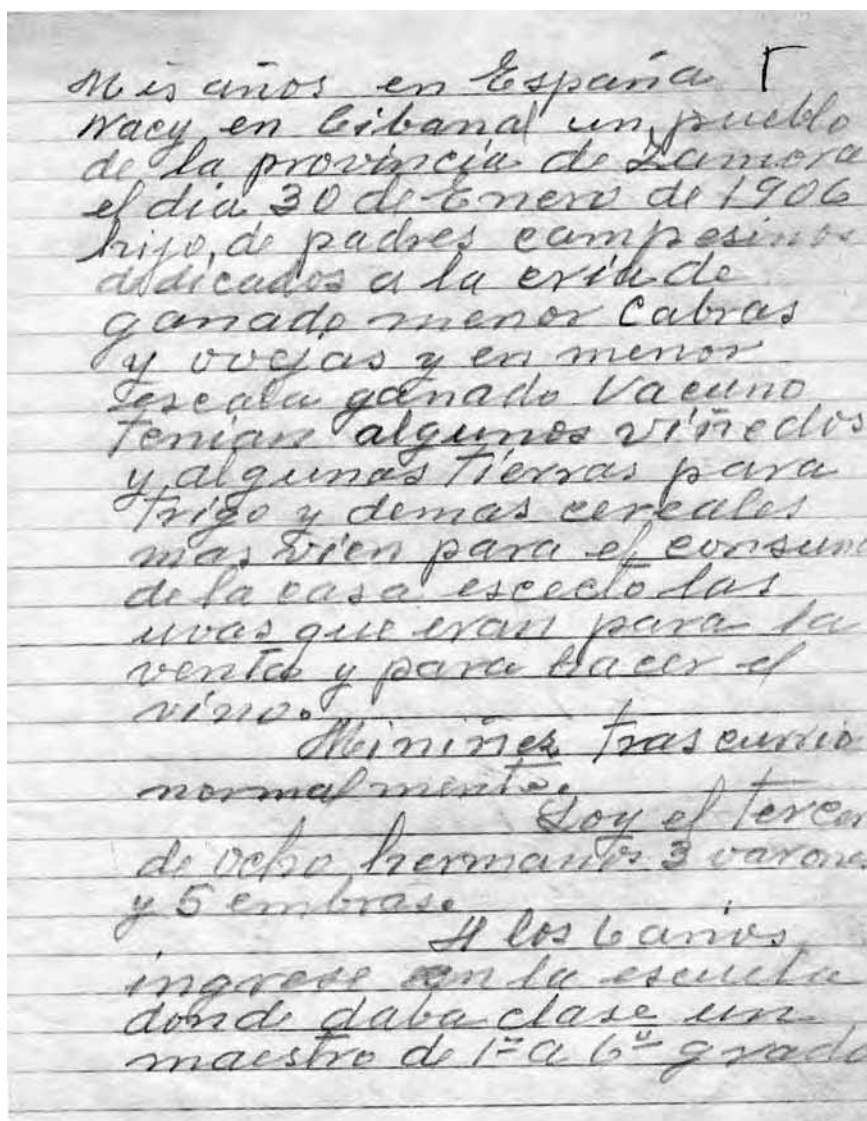 Mis años en España
Nacy en Cibanal un pueblo
de la provincia de Zamora
el dia 30 de Enero de 1906
hijo, de padres campesinos
dedicados a la cria de
ganado menor Cabras
y ovejas y en menor
escala ganado Vacuno
Tenian algunos viñedos
y algunas Tierras para
Trigo y demas cereales
mas vien para el consumo
de la casa escecto las
uvas que eran para la
venta y para hacer el
vino.
Mi niñez trascurrio
normalmente.
Soy el tercer
de ocho hermanos 3 varones
y 5 embras.
A los 6 años
ingrese en la escuela
donde daba clase un
maestro de 1º a 6º grado